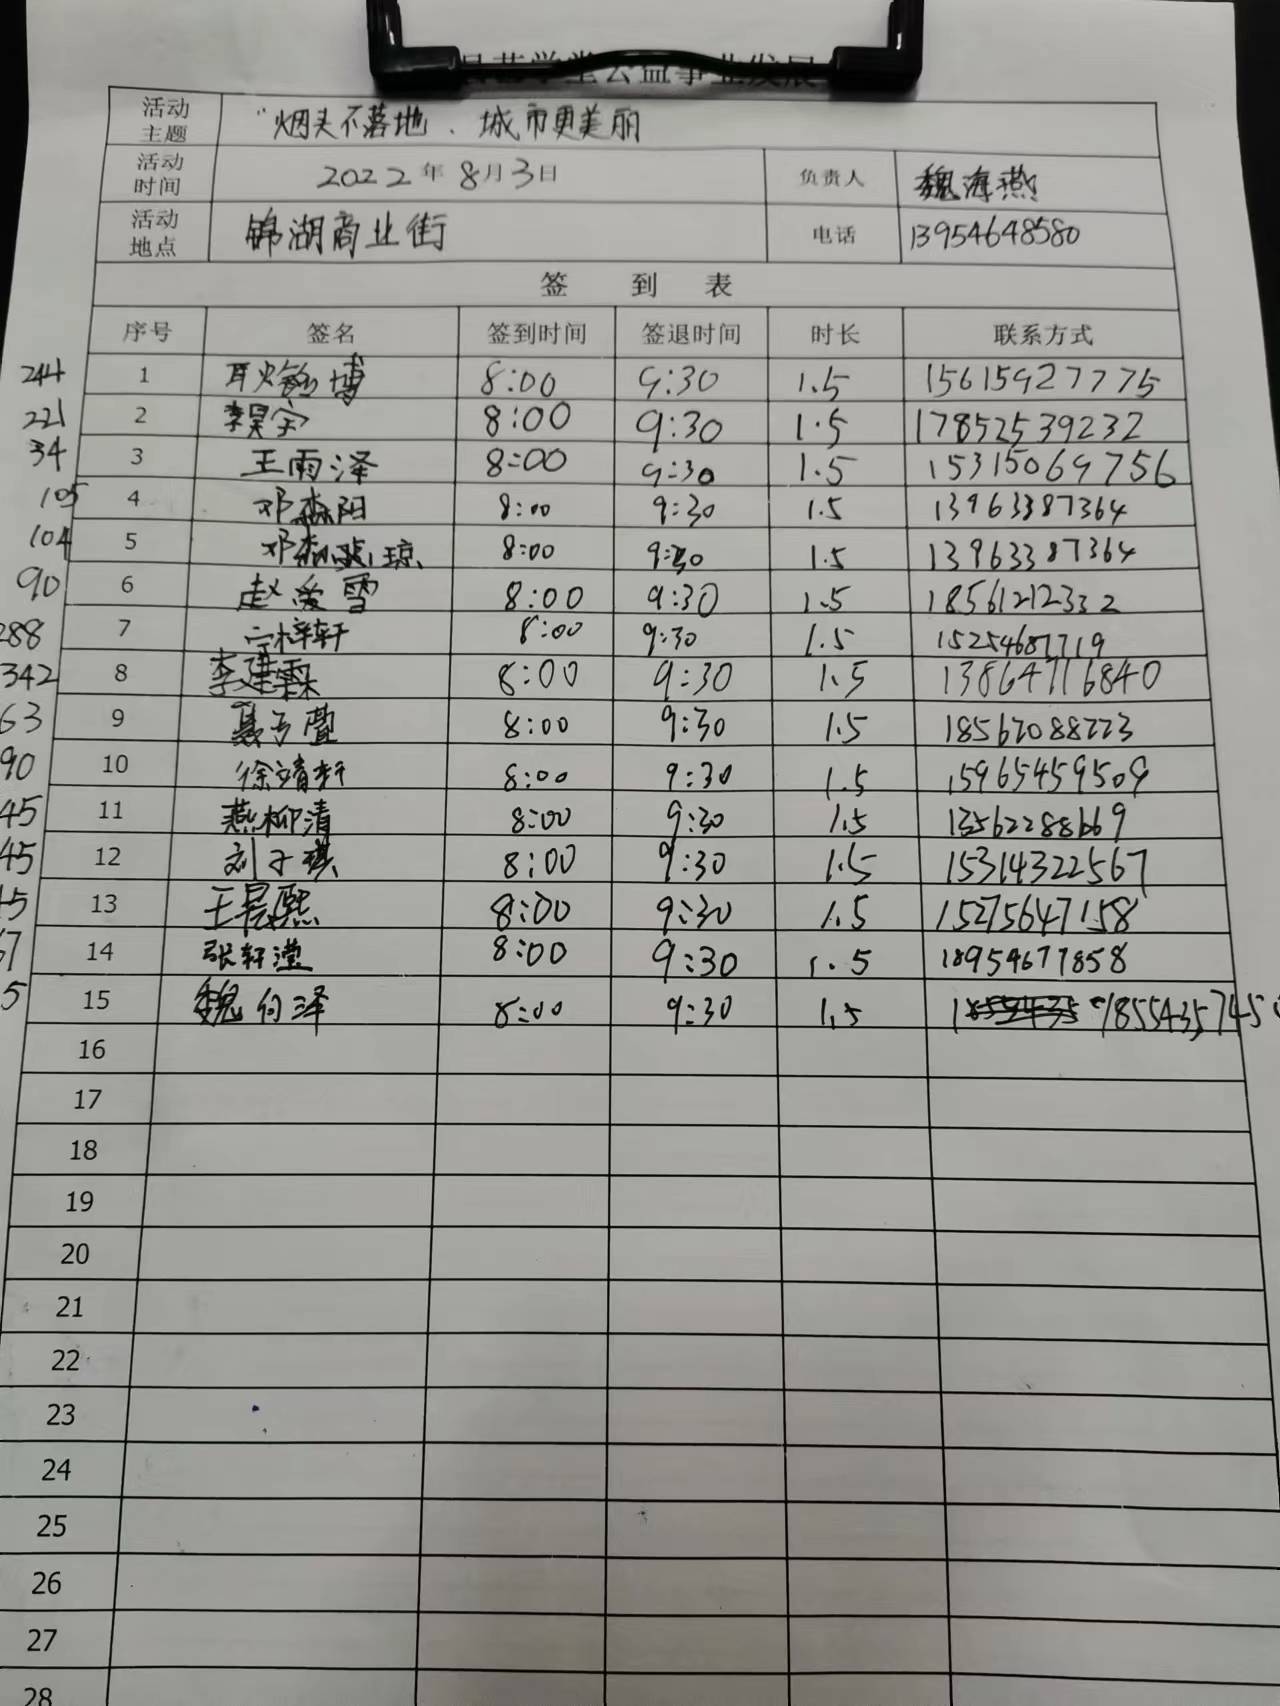 学堂公益事业发展
活动主题 "烟头不落地、城市更美丽
活动时间 2022年8月3日 负责人 魏海燕
活动地点 锦湖商业街 电话 13954648580
签 到 表
序号 签名 签到时间 签退时间 时长 联系方式
244 1 博 8:00 9:30 1.5 15615927775
221 2 李昊宇 8:00 9:30 1.5 17852539232
34 3 王雨泽 8:00 9:30 1.5 15315069756
105 4 邓淼阳 8:00 9:30 1.5 13963387364
104 5 邓淼琼 8:00 9:30 1.5 13963387364
90 6 赵爱雪 8:00 9:30 1.5 18561212332
288 7 梓轩 8:00 9:30 1.5 15254687719
342 8 李建霖 8:00 9:30 1.5 13864716840
63 9 聂子萱 8:00 9:30 1.5 18562088223
90 10 徐靖轩 8:00 9:30 1.5 15965459509
45 11 燕柳清 8:00 9:30 1.5 13562288669
45 12 刘子琪 8:00 9:30 1.5 15314322567
5 13 王晨熙 8:00 9:30 1.5 15275647158
7 14 张轩滢 8:00 9:30 1.5 18954677858
5 15 魏向泽 8:00 9:30 1.5 1855435745
16
17
18
19
20
21
22
23
24
25
26
27
28